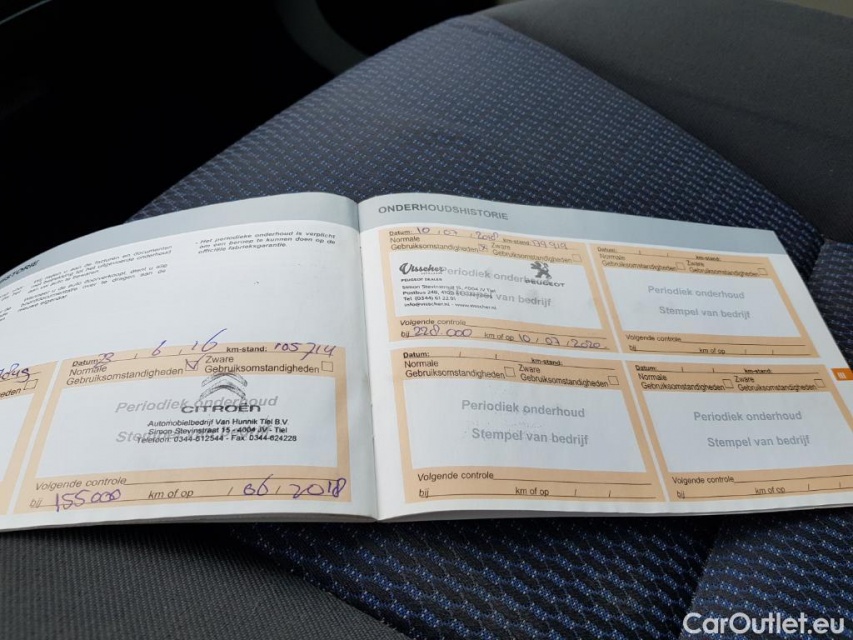 - Het periodieke onderhoud is verplicht
om een beroep te kunnen doen op de
officiële fabrieksgarantie.
Datum: 6 16 km-stand: 105714
Normale Zware
Gebruiksomstandigheden Gebruiksomstandigheden
Periodiek onderhoud
CITROËN
Automobielbedrijf Van Hunnik Tiel B.V.
Simon Stevinstraat 15 - 4004 JV - Tiel
Telefoon: 0344-612544 - Fax 0344-624228
Volgende controle
bij 155000 km of op / 06 / 2018
ONDERHOUDSHISTORIE
Datum: 10 . 07 . km-stand:
Normale Zware
Gebruiksomstandigheden Gebruiksomstandigheden
Visscher Periodiek onderhoud
PEUGEOT DEALER PEUGEOT
Simon Stevinstraat
van bedrijf
Volgende controle
bij 228 000 km of op 10 / 07 / 2020
Datum: km-stand:
Normale Zware
Gebruiksomstandigheden Gebruiksomstandigheden
Periodiek onderhoud
Stempel van bedrijf
Volgende controle
bij km of op / /
Datum: km-stand:
Normale Zware
Gebruiksomstandigheden Gebruiksomstandigheden
Periodiek onderhoud
Stempel van bedrijf
Volgende controle
bij km of op / /
Datum: km-stand:
Normale Zware
Gebruiksomstandigheden Gebruiksomstandigheden
Periodiek onderhoud
Stempel van bedrijf
Volgende controle
bij km of op / /
CarOutlet.eu